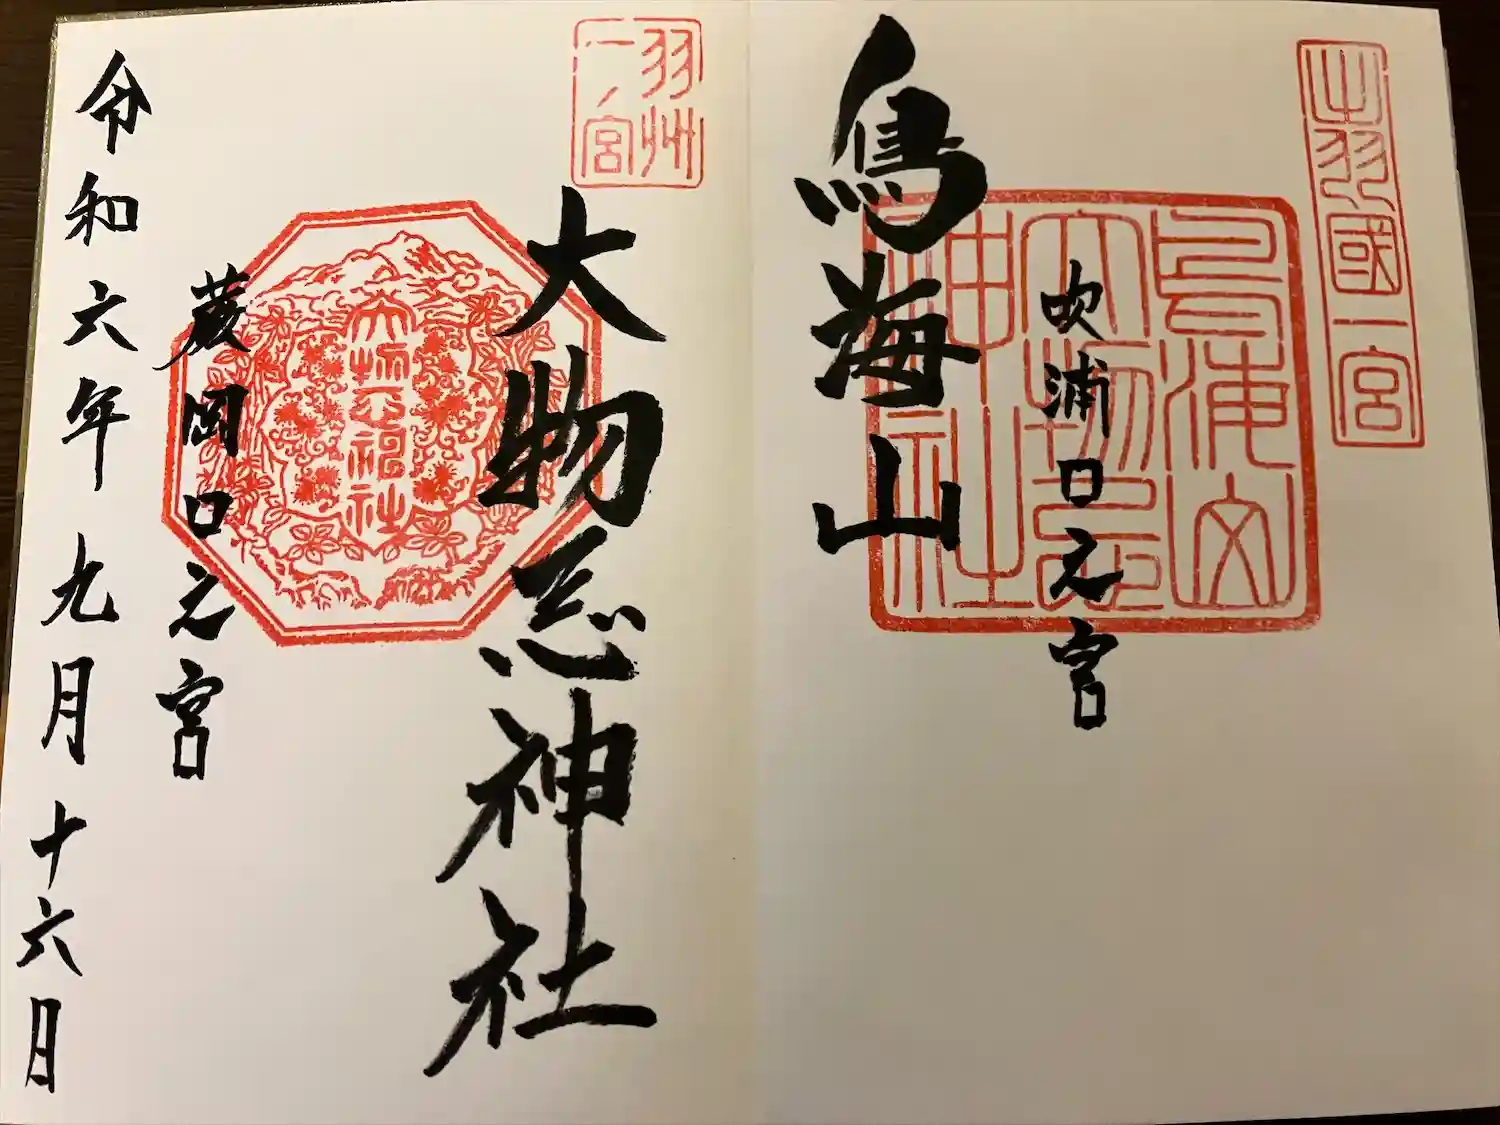 出羽國一宮
鳥海山
大物忌
神社
吹浦口之宮
鳥海山
羽州
一ノ宮
大物忌神社
大物忌神社
蕨岡口之宮
令和六年九月十六日